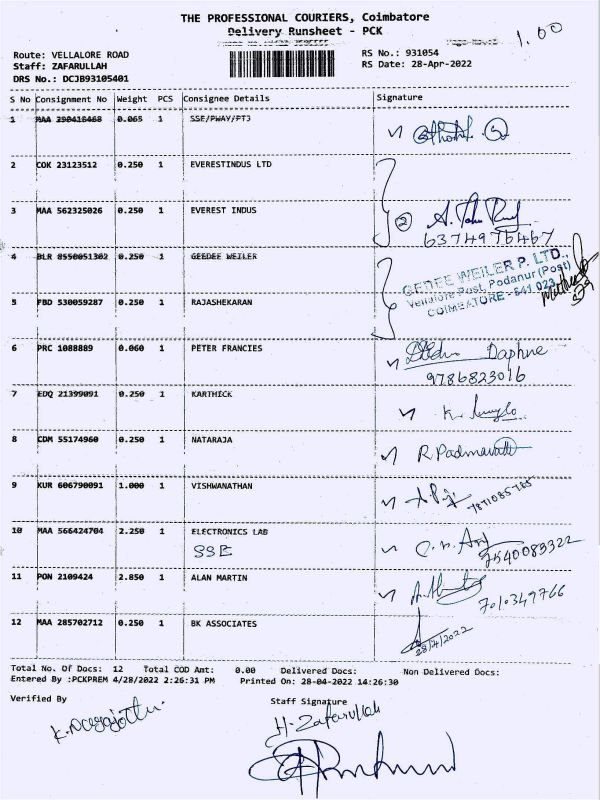 THE PROFESSIONAL COURIERS, Coimbatore
Delivery Runsheet - PCK
1.00
Route: VELLALORE ROAD
Staff: ZAFARULLAH
DRS No.: DCJB93105401
RS No.: 931054
RS Date: 28-Apr-2022
S No Consignment No Weight PCS Consignee Details Signature
1 MAA 390416468 0.065 1 SSE/PWAY/PTJ
2 COK 23123512 0.250 1 EVERESTINDUS LTD
3 MAA 562325026 0.250 1 EVEREST INDUS
2
6374976467
4 BLR 8550051302 0.250 1 GEEDEE WEILER
GEDEE WEILER P. LTD.,
Vellalore Post, Podanur (Post)
COIMBATORE - 641 023
5 FBD 530059287 0.250 1 RAJASHEKARAN
6 PRC 1088889 0.060 1 PETER FRANCIES
Daphne
9786823016
7 EDQ 21399091 0.250 1 KARTHICK
8 CDM 55174960 0.250 1 NATARAJA
R. Padmavathi
9 KUR 606790091 1.000 1 VISHWANATHAN
10 MAA 566424704 2.250 1 ELECTRONICS LAB
SSE
7540083322
11 PON 2109424 2.850 1 ALAN MARTIN
7010349766
12 MAA 285702712 0.250 1 BK ASSOCIATES
28/4/2022
Total No. Of Docs: 12 Total COD Amt: 0.00 Delivered Docs: Non Delivered Docs:
Entered By :PCKPREM 4/28/2022 2:26:31 PM Printed On: 28-04-2022 14:26:30
Verified By
Staff Signature
H. Zafarullah